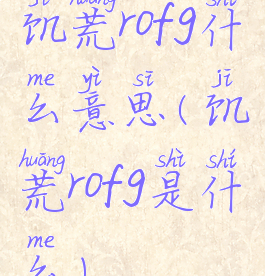 jī huāng shí
饥荒rofg什
me yì sī jī
么意思(饥
huāng shì shí
荒rofg是什
me
么)